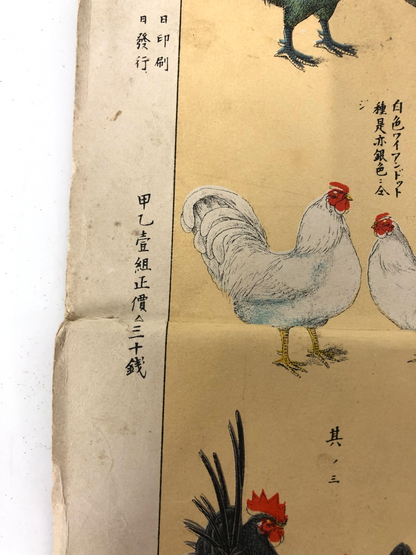 白色ワイアンドット
種是亦銀色ニ仝
ジ
其ノ三
日印刷
日發行
甲乙壹組正價金三十錢